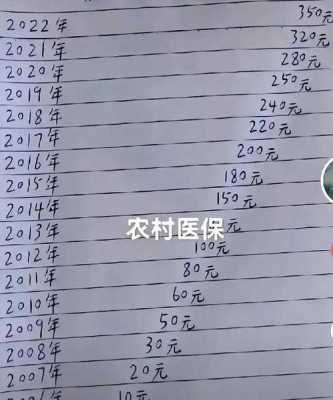 2022年 350元
2021年 320元
2020年 280元
2019年 250元
2018年 240元
2017年 220元
2016年 200元
2015年 180元
2014年 150元
2013年 元
农村医保
2012年 100元
2011年 80元
2010年 60元
2009年 50元
2008年 30元
2007年 20元
10元